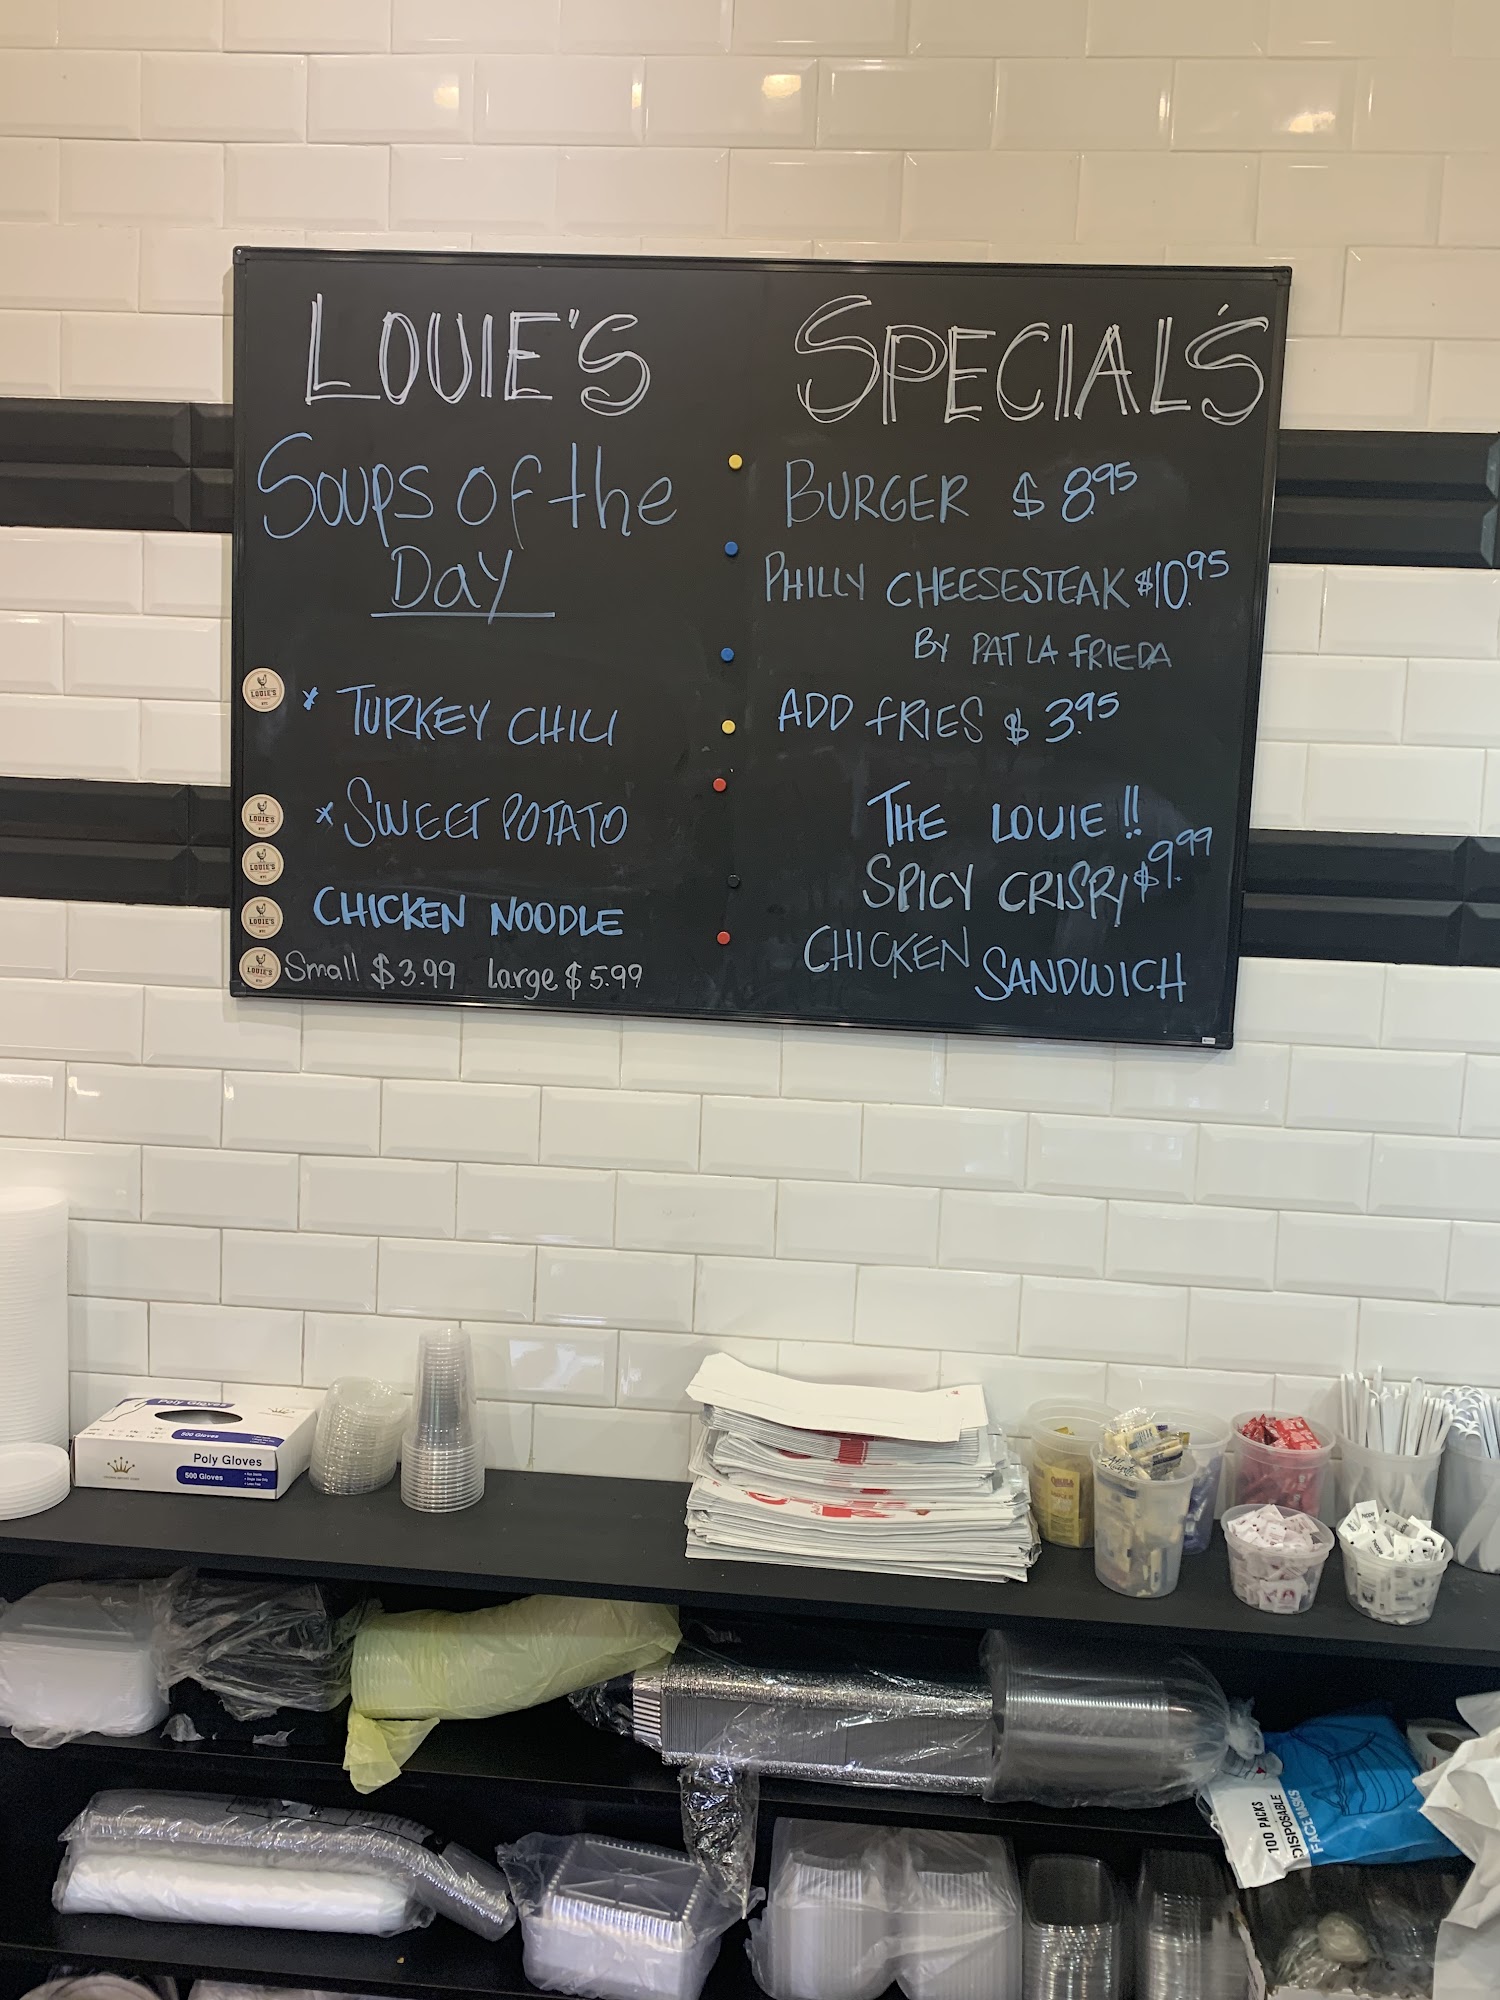 LOUIE'S
Soups of the
Day
* TURKEY CHILI
* SWEET POTATO
CHICKEN NOODLE
Small $3.99 Large $5.99
SPECIAL'S
BURGER $8.95
PHILLY CHEESESTEAK $10.95
BY PAT LA FRIEDA
ADD FRIES $3.95
THE LOUIE!!
SPICY CRISPY $9.99
CHICKEN SANDWICH
LOUIE'S
LOUIE'S
LOUIE'S
LOUIE'S
LOUIE'S
Poly Gloves
500 Gloves
Poly Gloves
500 Gloves
100 PACKS
DISPOSABLE
FACE MASKS